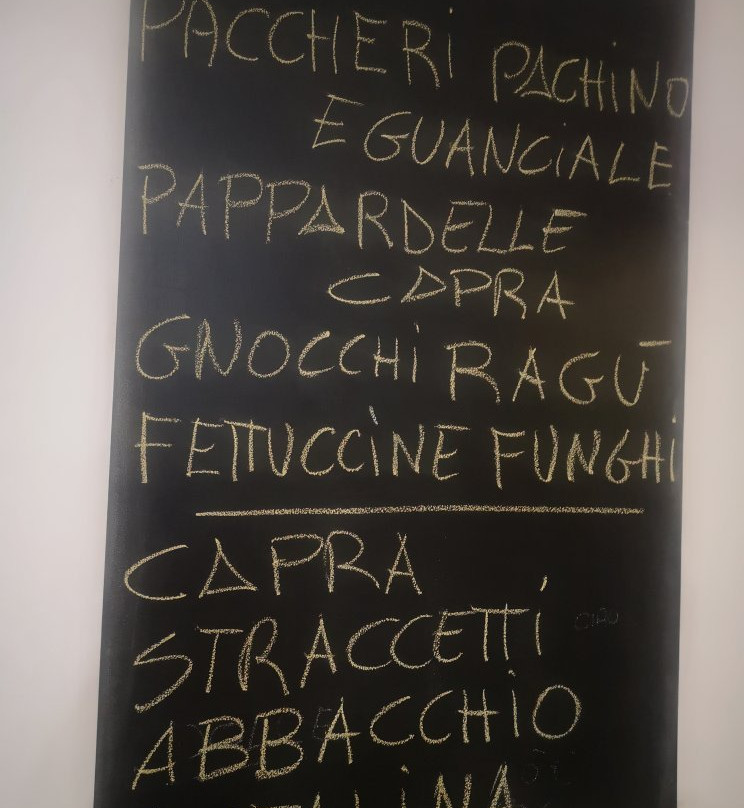 PACCHERI PACHINO
E GUANCIALE
PAPPARDELLE
CAPRA
GNOCCHI RAGÙ
FETTUCCINE FUNGHI
CAPRA
STRACCETTI
CIAO
ABBACCHIO